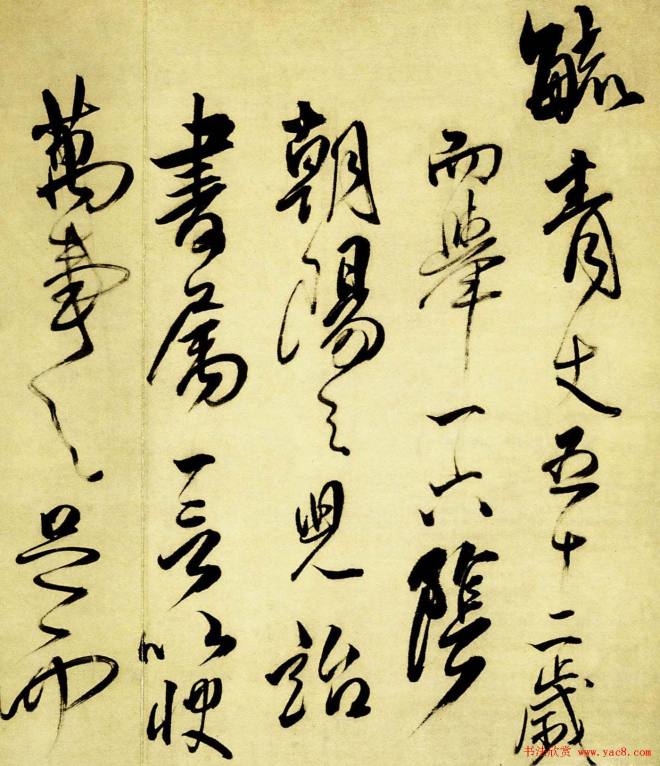 毓青丈五十二歲
而舉一六陰
朝陽之兒詒
書属一言以快
萬事之而
书法欣赏 www.yac8.com